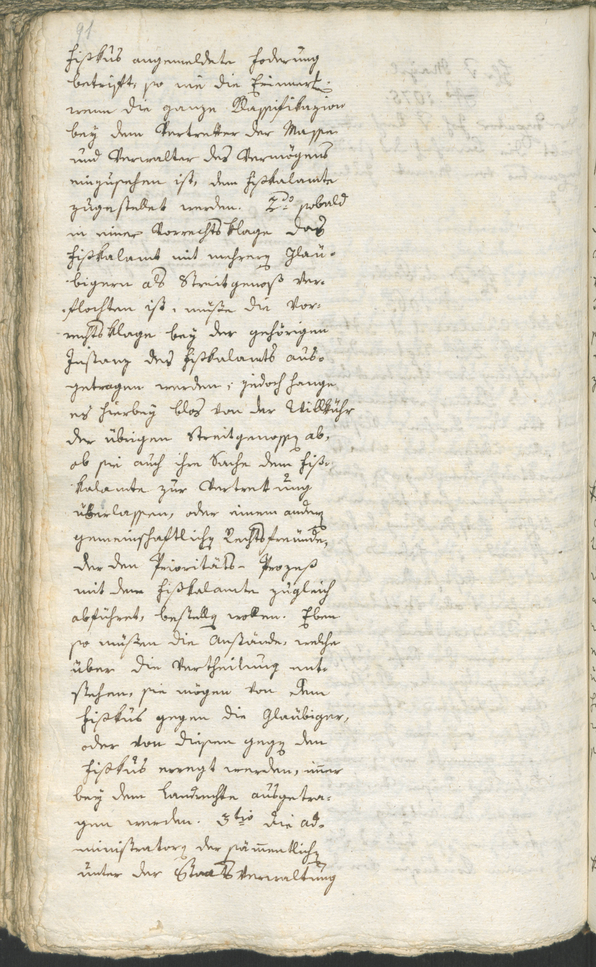 91
Fißkus angemeldete Foderung
betrifft, so wie die Erinnert:
wenn die ganze Klassifikazion
bey dem Vertretter der Masse
und Verwalter des Vermögens
einzusehen ist, dem Fißkalamte
zugestellet werden. 2do sobald
in einer Vorrechtsklage das
Fißkalamt mit mehrern Gläu-
bigern als Streitgenoß ver-
flochten ist, müße die Vor-
rechtsklage bey der gehörigen
Instanz des Fißkalamts aus-
getragen werden; jedoch hange
es hierbey blos von der Willkühr
der übrigen Streitgenossen ab,
ob sie auch ihre Sache dem Fiß-
kalamte zur Vertrettung
überlassen, oder einem andern
gemeinschaftlichen Rechtsfreunde,
der den Prioritäts-Prozeß
mit dem Fißkalamte zugleich
abführet, bestellen wollen. Eben
so müßen die Anstände, welche
über die Vertheilung ent-
stehen, sie mögen von dem
Fißkus gegen die Gläubiger,
oder von diesen gegen den
Fißkus erregt werden, im̄er
bey dem Landrechte ausgetra-
gen werden. 3tio die ad-
ministratorn der säm̄entlichen
unter der Staatsverwaltung